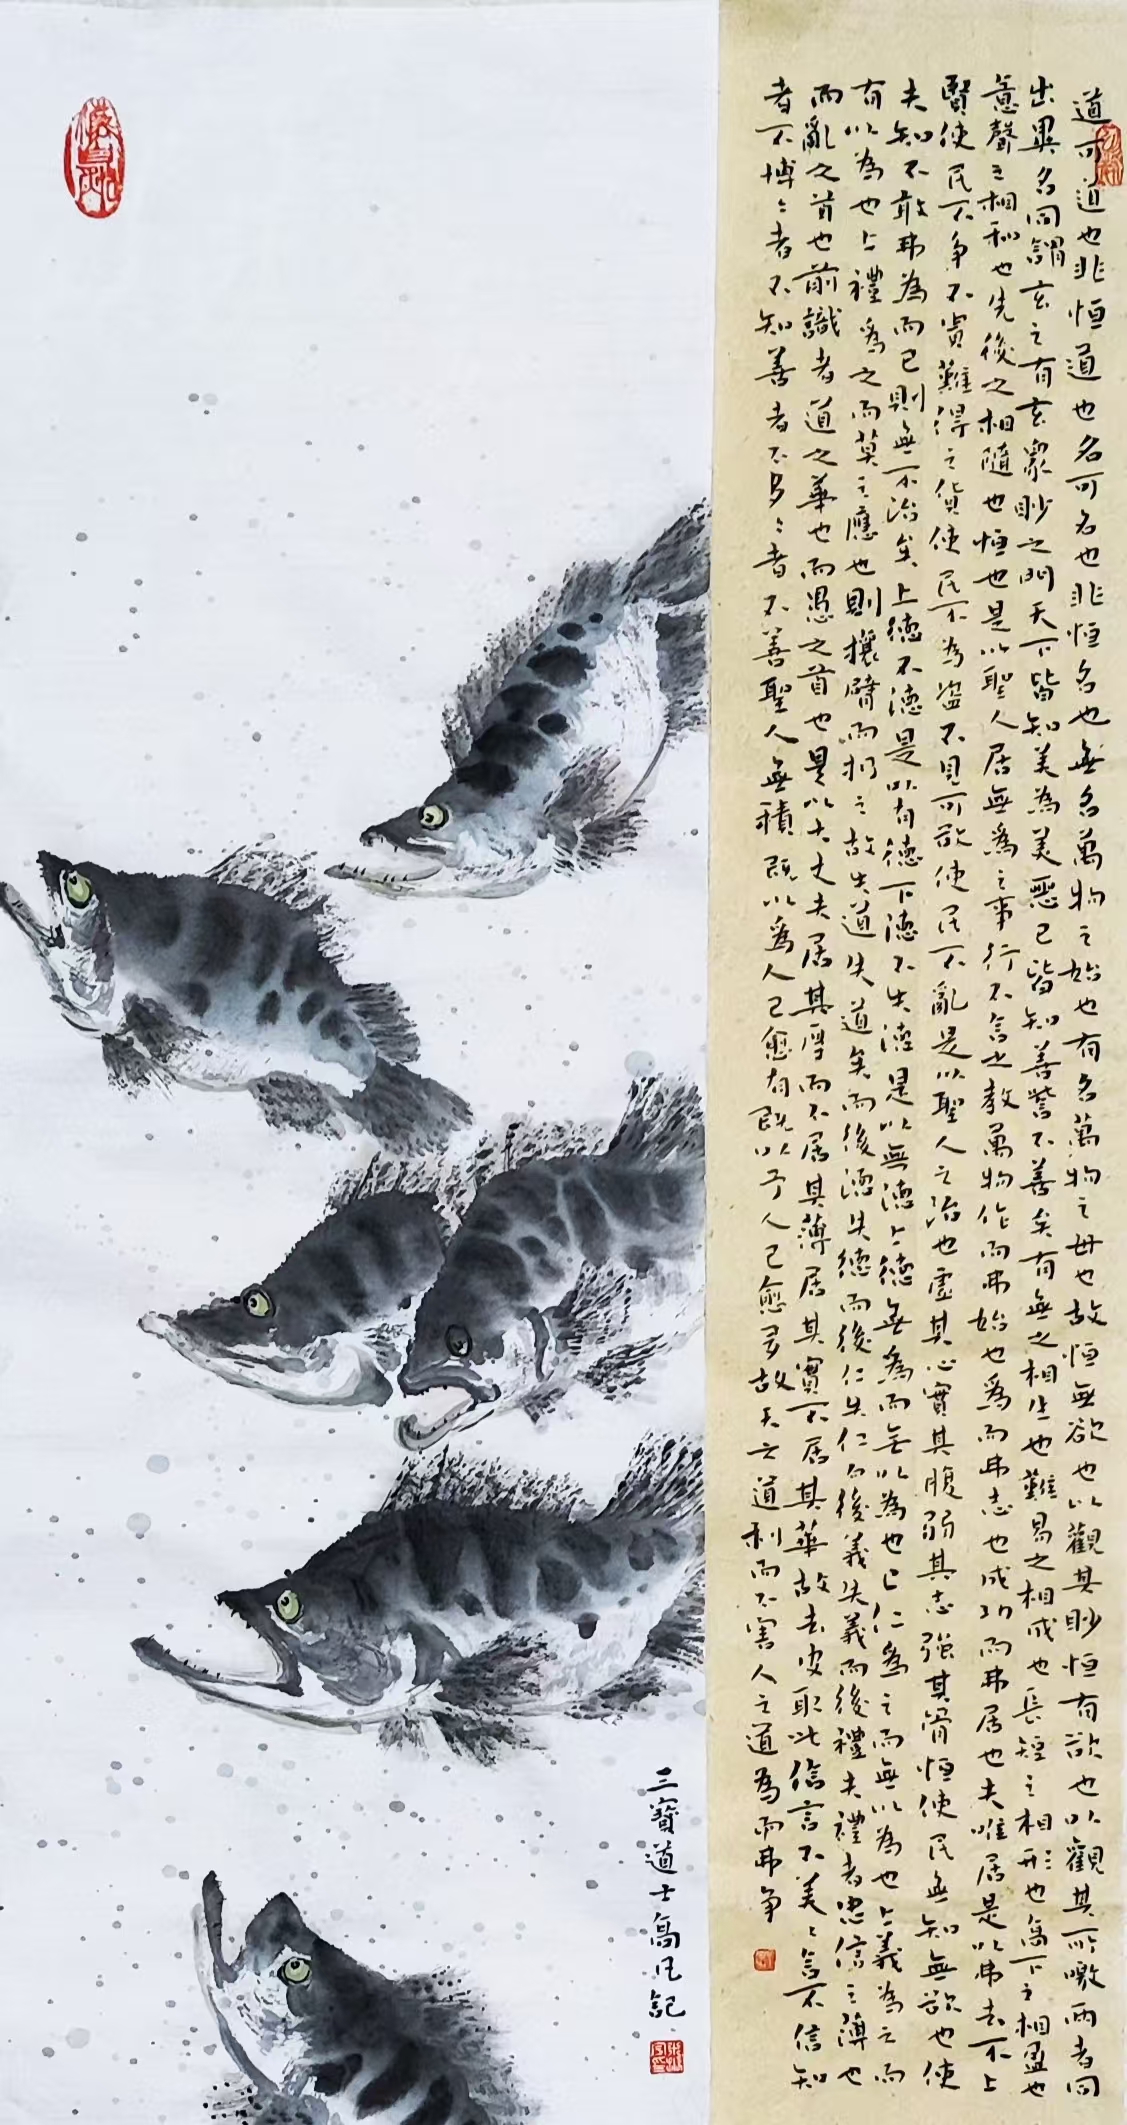 道可道也非恒道也名可名也非恒名也無名萬物之始也有名萬物之母也故恒無欲也以觀其眇恒有欲也以觀其所噭兩者同
出異名同謂玄之有玄眾眇之門天下皆知美為美惡已皆知善訾不善矣有無之相生也難易之相成也長短之相形也高下之相盈也
意聲之相和也先後之相隨也恒也是以聖人居無為之事行不言之教萬物作而弗始也為而弗志也成功而弗居也夫唯居是以弗去不上
賢使民不爭不貴難得之貨使民不為盜不見可欲使民不亂是以聖人之治也虛其心實其腹弱其志強其骨恒使民無知無欲也使
夫知不敢弗為而已則無不治矣上德不德是以有德下德不失德是以無德上德無為而無以為也上仁為之而無以為也上義為之而
有以為也上禮為之而莫之應也則攘臂而扔之故失道失道矣而後德失德而後仁失仁而後義失義而後禮夫禮者忠信之薄也
而亂之首也前識者道之華也而愚之首也是以大丈夫居其厚而不居其薄居其實不居其華故去皮取此信言不美〻言不信知
者不博〻者不知善者不多〻者不善聖人無積既以為人己愈有既以予人己愈多故天之道利而不害人之道為而弗爭
三寶道士高凡記